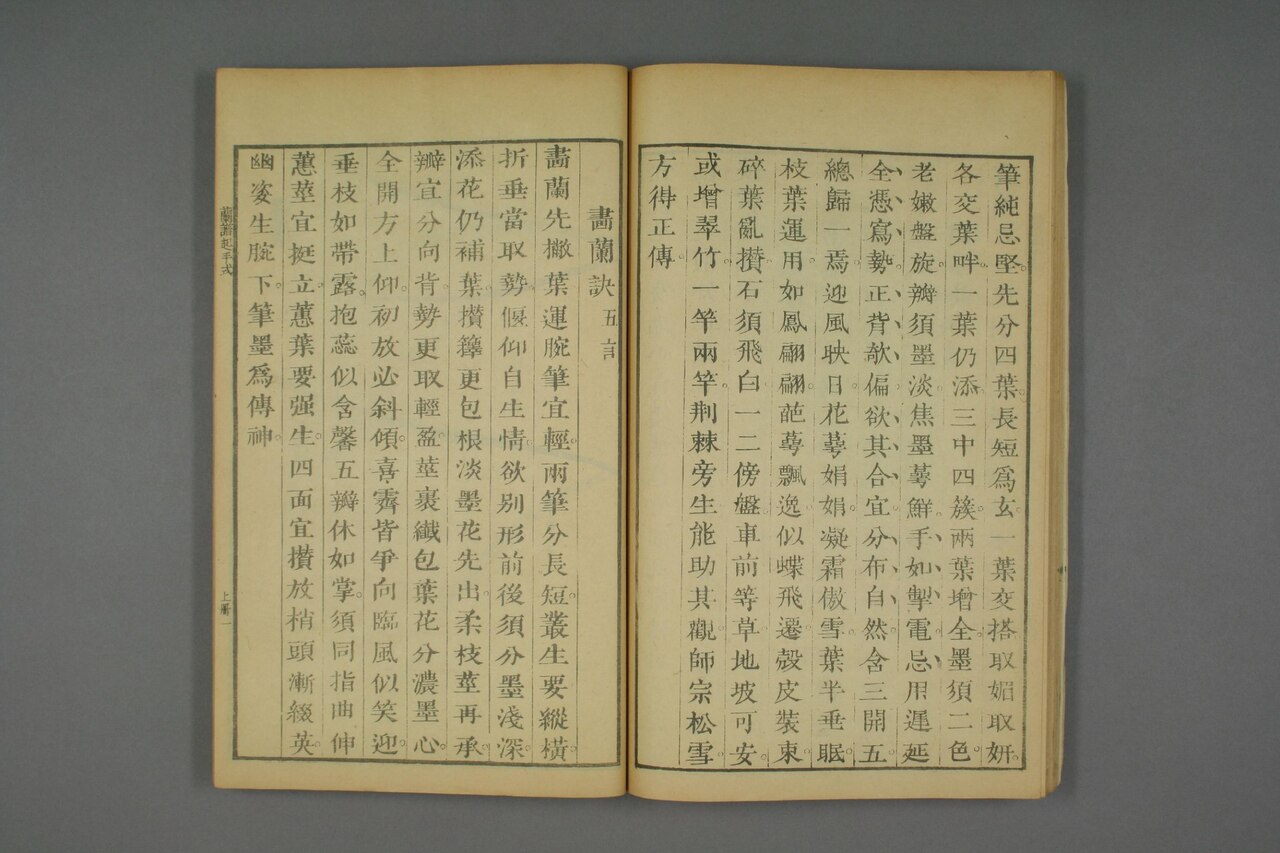 筆純忌堅。先分四葉。長短爲玄。一葉交搭。取媚取妍。
各交葉畔。一葉仍添。三中四簇。兩葉增全。墨須二色。
老嫩盤旋。瓣須墨淡。焦墨萼鮮。手如掣電。忌用遲延。
全憑寫勢。正背欹偏。欲其合宜。分布自然。含三開五。
總歸一焉。迎風映日。花萼娟娟。凝霜傲雪。葉半垂眠。
枝葉運用。如鳳翩翩。葩萼飄逸。似蝶飛遷。殼皮裝束。
碎葉亂攢。石須飛白。一二傍盤。車前等草。地坡可安。
或增翠竹。一竿兩竿。荆棘旁生。能助其觀。師宗松雪。
方得正傳。
畵蘭訣 五言
畵蘭先撇葉。運腕筆宜輕。兩筆分長短。叢生要縱橫。
折垂當取勢。偃仰自生情。欲别形前後。須分墨淺深。
添花仍補葉。攢籜更包根。淡墨花先出。柔枝莖再承。
瓣宜分向背。勢更取輕盈。莖裹纖包葉。花分濃墨心。
全開方上仰。初放必斜傾。喜霽皆爭向。臨風似笑迎。
垂枝如帶露。抱蕊似含馨。五瓣休如掌。須同指曲伸。
蕙莖宜挺立。蕙葉要强生。四面宜攢放。梢頭漸綴英。
幽姿生腕下。筆墨爲傳神。
蘭譜起手式
上册一